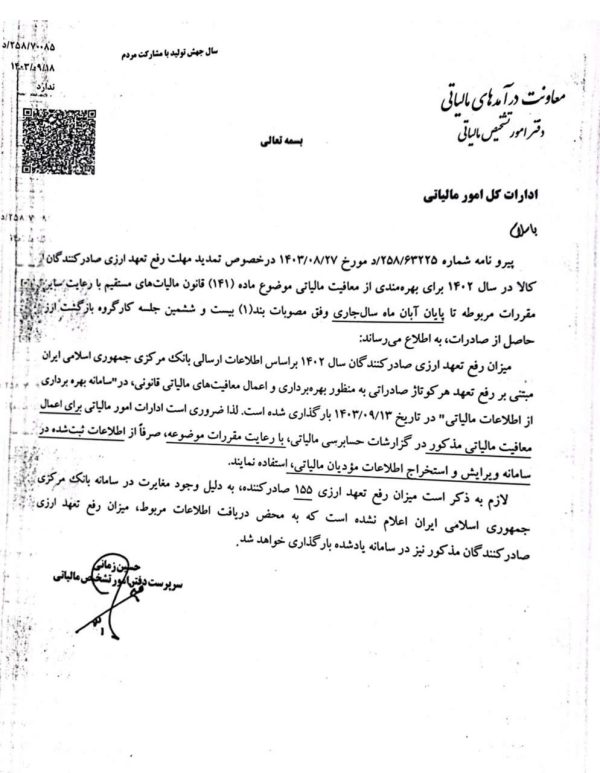 سال جهش تولید با مشارکت مردم
د/۲۵۸/۷۰۰۸۵
۱۴۰۳/۰۹/۱۸
ندارد
معاونت درآمدهای مالیاتی
دفتر امور تشخیص مالیاتی
بسمه تعالی
ادارات کل امور مالیاتی
باسلام
پیرو نامه شماره د/۲۵۸/۶۳۲۲۵ مورخ ۱۴۰۳/۰۸/۲۷ درخصوص تمدید مهلت رفع تعهد ارزی صادرکنندگان
کالا در سال ۱۴۰۲ برای بهره‌مندی از معافیت مالیاتی موضوع ماده (۱۴۱) قانون مالیات‌های مستقیم با رعایت سایر
مقررات مربوطه تا پایان آبان ماه سال‌جاری وفق مصوبات بند(۱) بیست و ششمین جلسه کارگروه بازگشت ارز
حاصل از صادرات، به اطلاع می‌رساند:
میزان رفع تعهد ارزی صادرکنندگان سال ۱۴۰۲ براساس اطلاعات ارسالی بانک مرکزی جمهوری اسلامی ایران
مبتنی بر رفع تعهد هر کوتاژ صادراتی به منظور بهره‌برداری و اعمال معافیت‌های مالیاتی قانونی، در"سامانه بهره برداری
از اطلاعات مالیاتی" در تاریخ ۱۴۰۳/۰۹/۱۳ بارگذاری شده است. لذا ضروری است ادارات امور مالیاتی برای اعمال
معافیت مالیاتی مذکور در گزارشات حسابرسی مالیاتی، با رعایت مقررات موضوعه، صرفاً از اطلاعات ثبت‌شده در
سامانه ویرایش و استخراج اطلاعات مؤدیان مالیاتی، استفاده نمایند.
لازم به ذکر است میزان رفع تعهد ارزی ۱۵۵ صادرکننده، به دلیل وجود مغایرت در سامانه بانک مرکزی
جمهوری اسلامی ایران اعلام نشده است که به محض دریافت اطلاعات مربوط، میزان رفع تعهد ارزی
صادرکنندگان مذکور نیز در سامانه یادشده بارگذاری خواهد شد.
حسین زمانی
سرپرست دفتر امور تشخیص مالیاتی